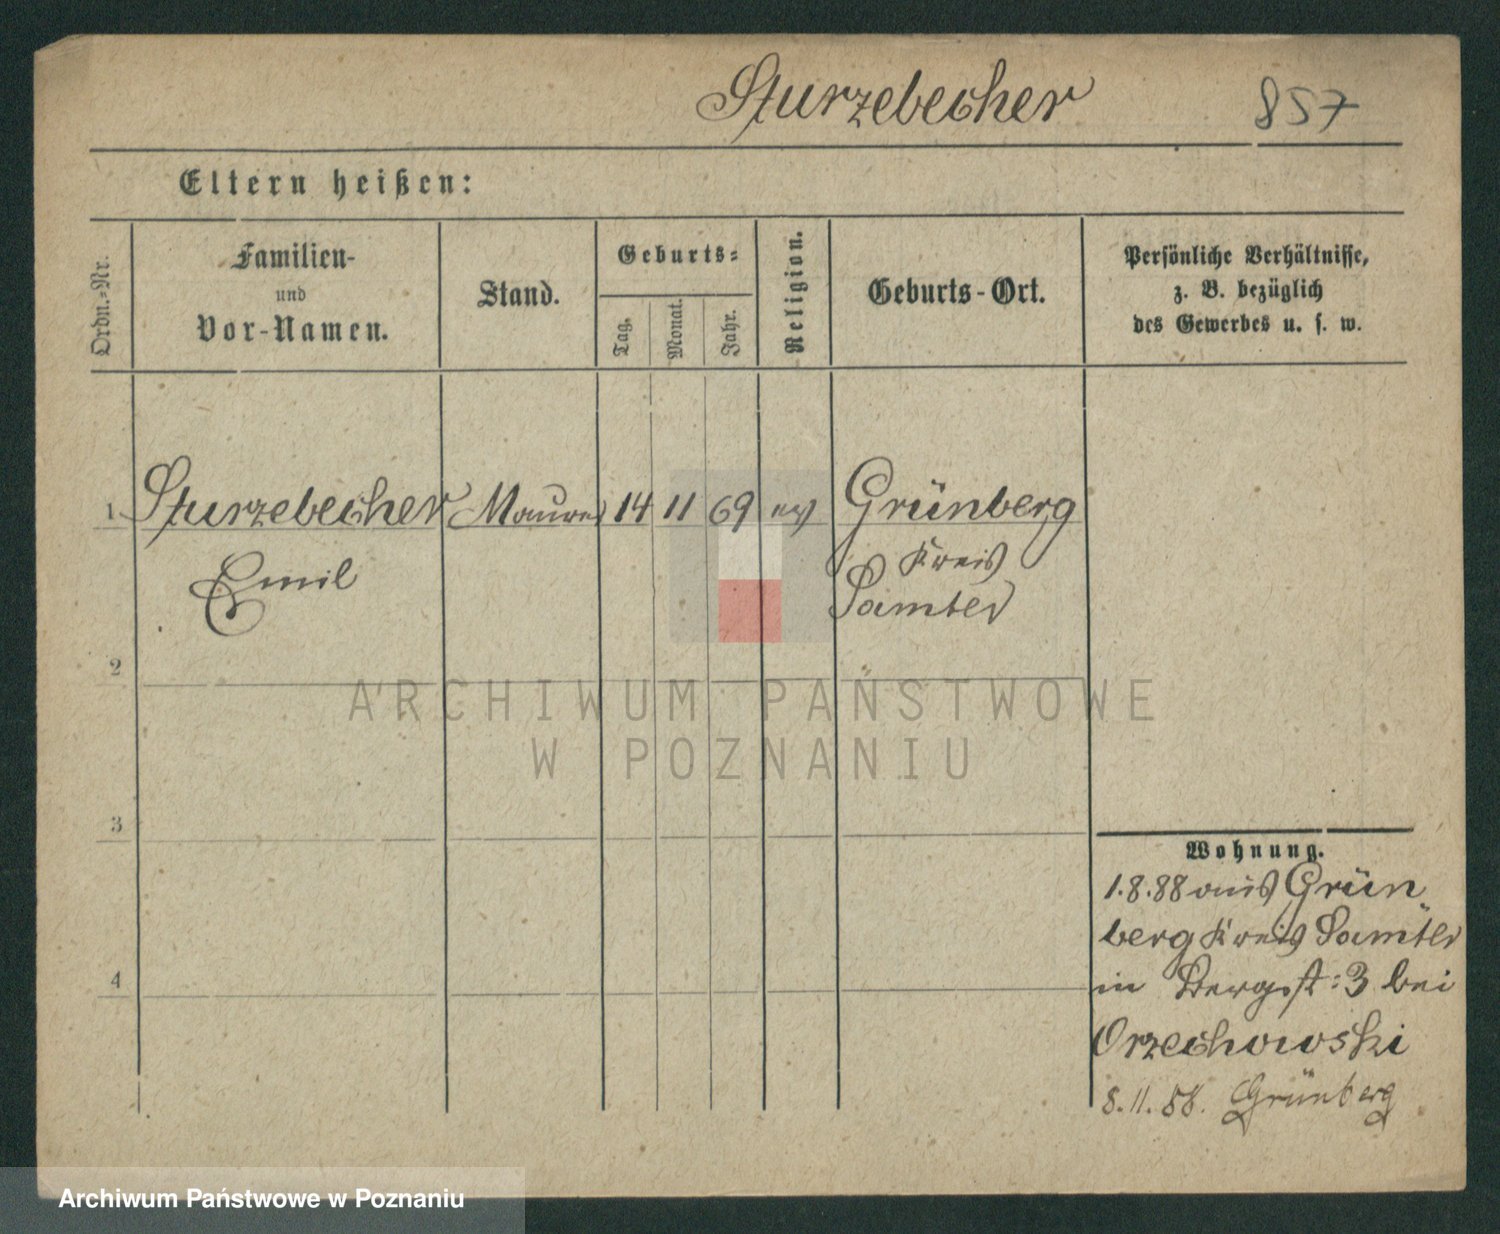 Sturzebecher 857
Eltern heißen:
Ordn.-Nr.
Familien-
und
Vor-Namen.
Stand.
Geburts-
Tag.
Monat.
Jahr.
Religion.
Geburts-Ort.
Persönliche Verhältnisse,
z. B. bezüglich
des Gewerbes u. s. w.
1 Sturzebecher Maurer 14 11 69 ev Grünberg
Emil
Kreis
Samter
2
3
4
ARCHIWUM PAŃSTWOWE
W POZNANIU
Wohnung.
1.8.88 aus Grün
berg Kreis Samter
in Bergst: 3 bei
Orzechowski
8.11.88. Grünberg
Archiwum Państwowe w Poznaniu